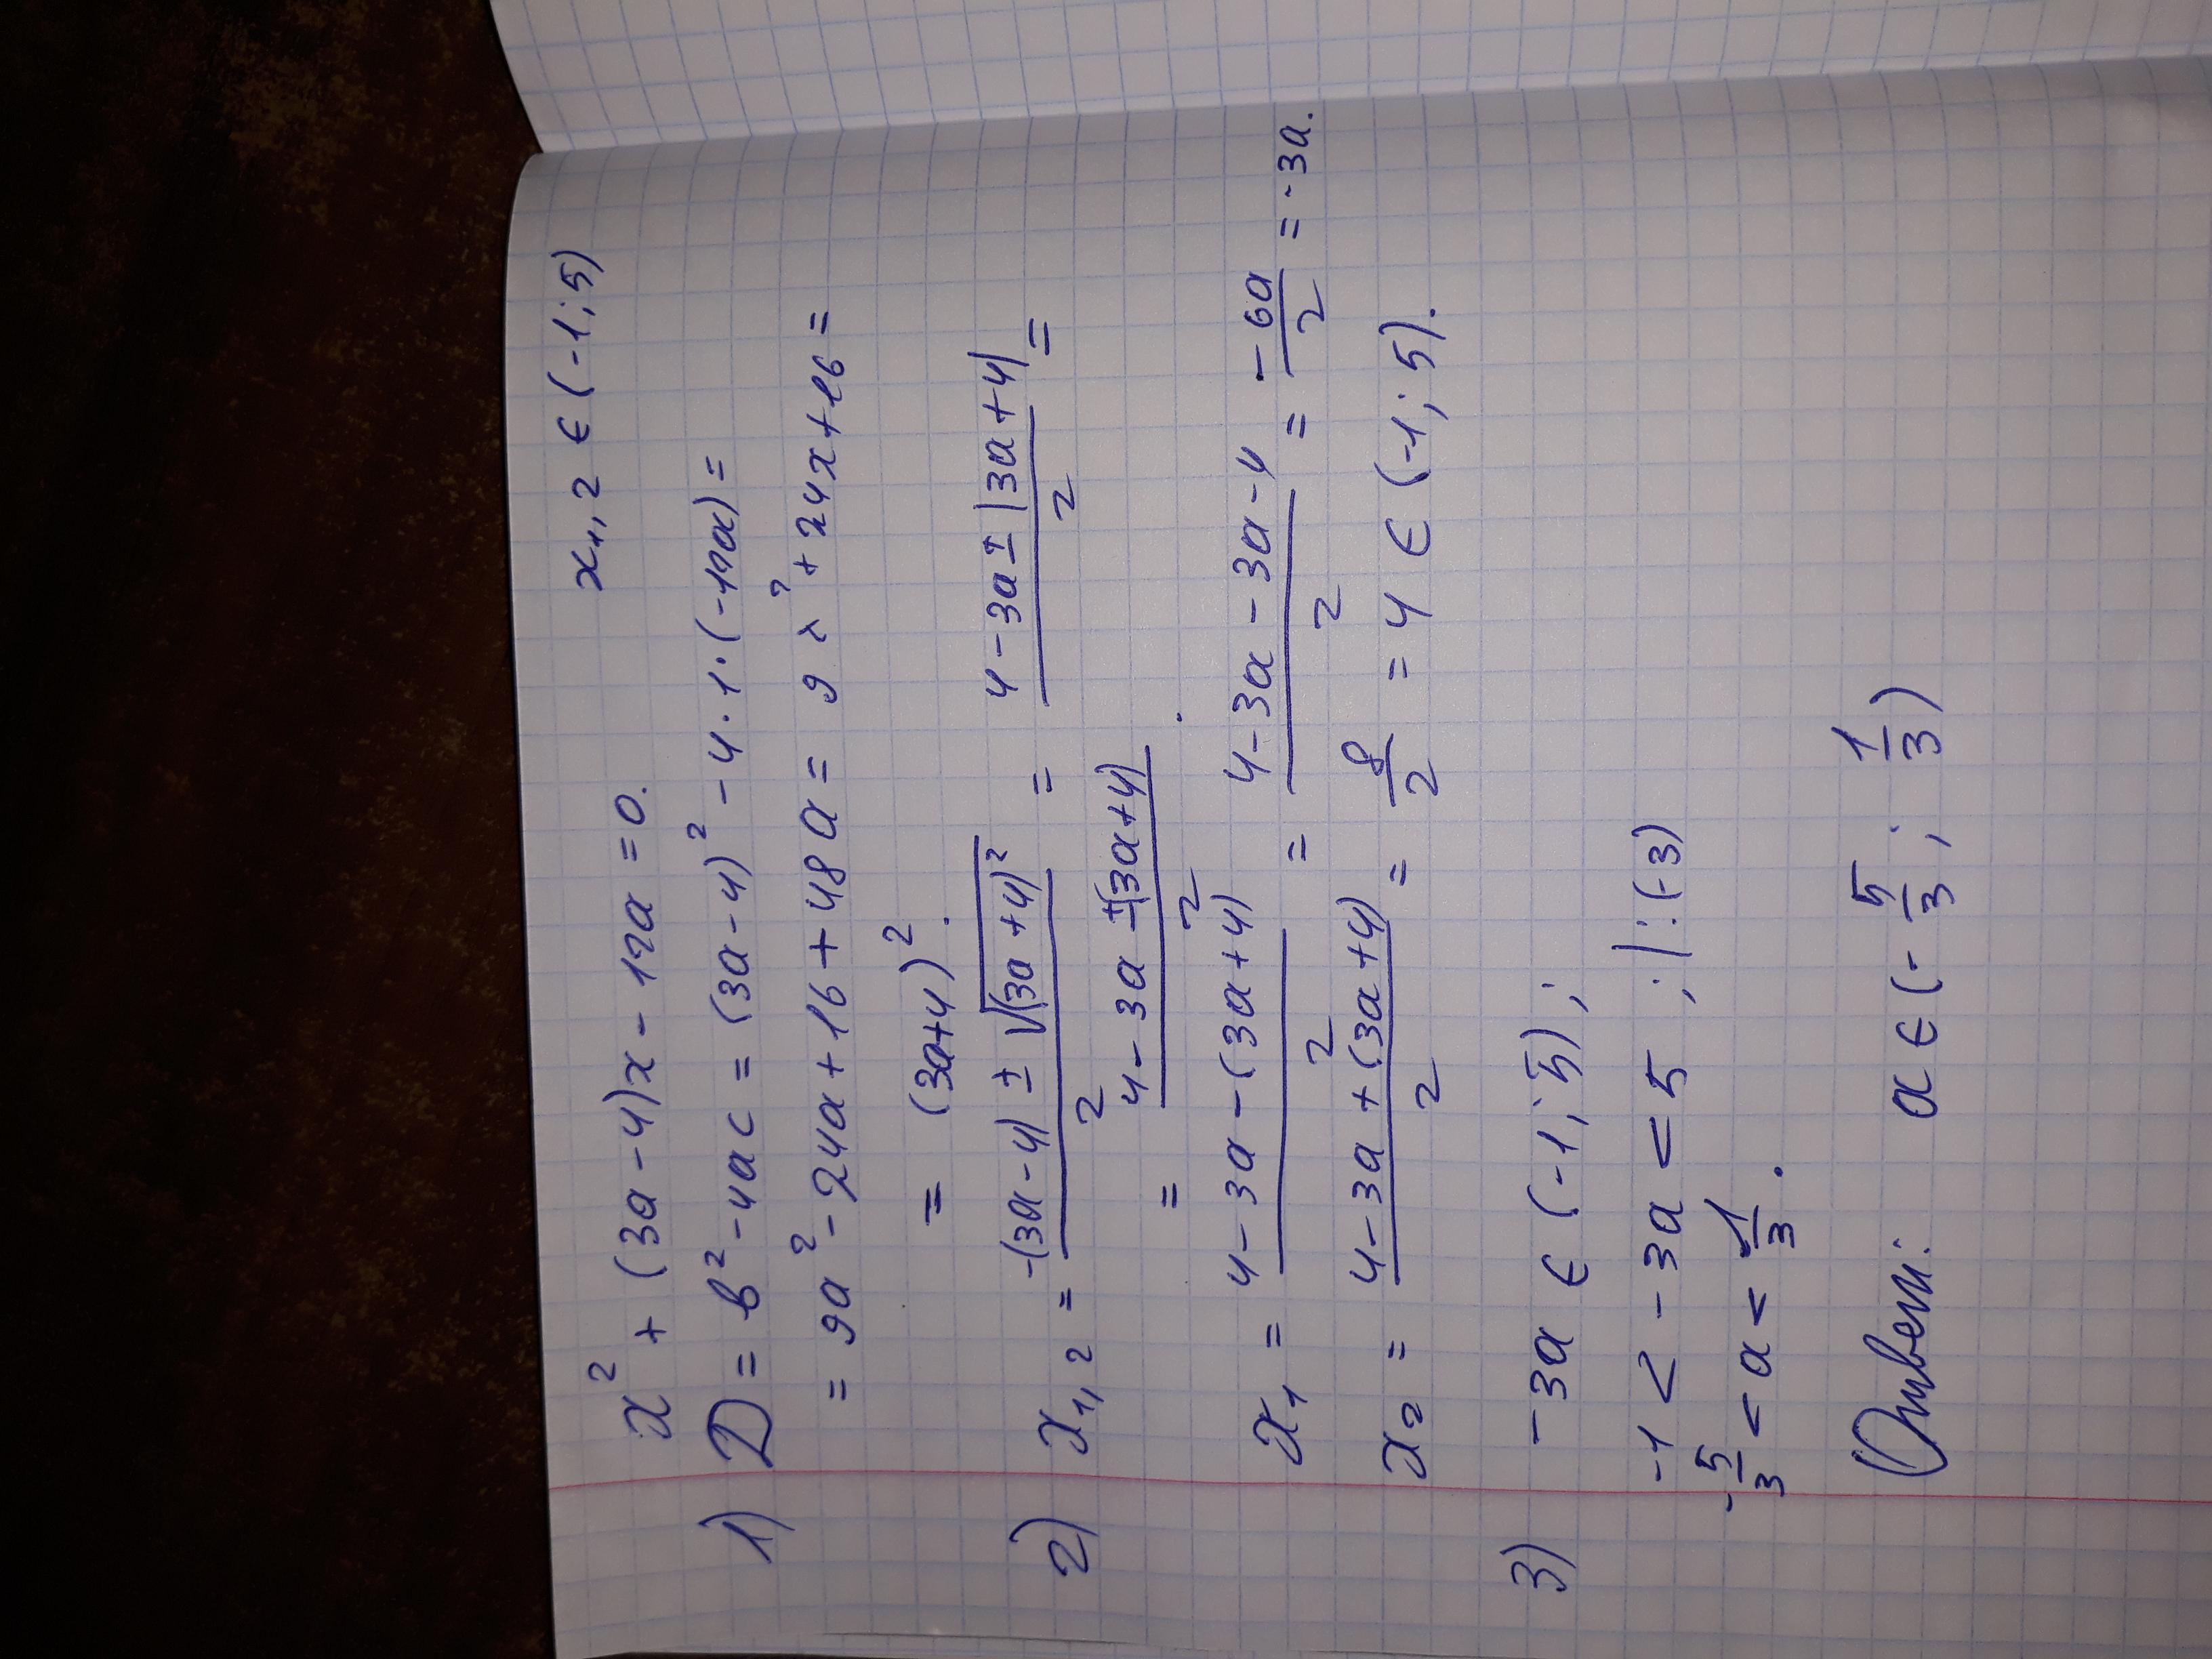 x² + (3a - 4)x - 12a = 0. x₁,₂ ∈ (-1; 5)
1) D = b² - 4ac = (3a - 4)² - 4 · 1 · (-12a) =
= 9a² - 24a + 16 + 48a = 9x² + 24x + 16 =
= (3a+4)².
2) x₁,₂ = (-(3a - 4) ± √(3a + 4)²)/2 = (4 - 3a ± |3a + 4|)/2 =
= (4 - 3a ± (3a + 4))/2.
x₁ = (4 - 3a - (3a + 4))/2 = (4 - 3a - 3a - 4)/2 = -6a/2 = -3a.
x₂ = (4 - 3a + (3a + 4))/2 = 8/2 = 4 ∈ (-1; 5).
3) -3a ∈ (-1; 5);
-1 < -3a < 5 ; | : (-3)
-5/3 < a < 1/3.
Ответ: a ∈ (-5/3; 1/3)